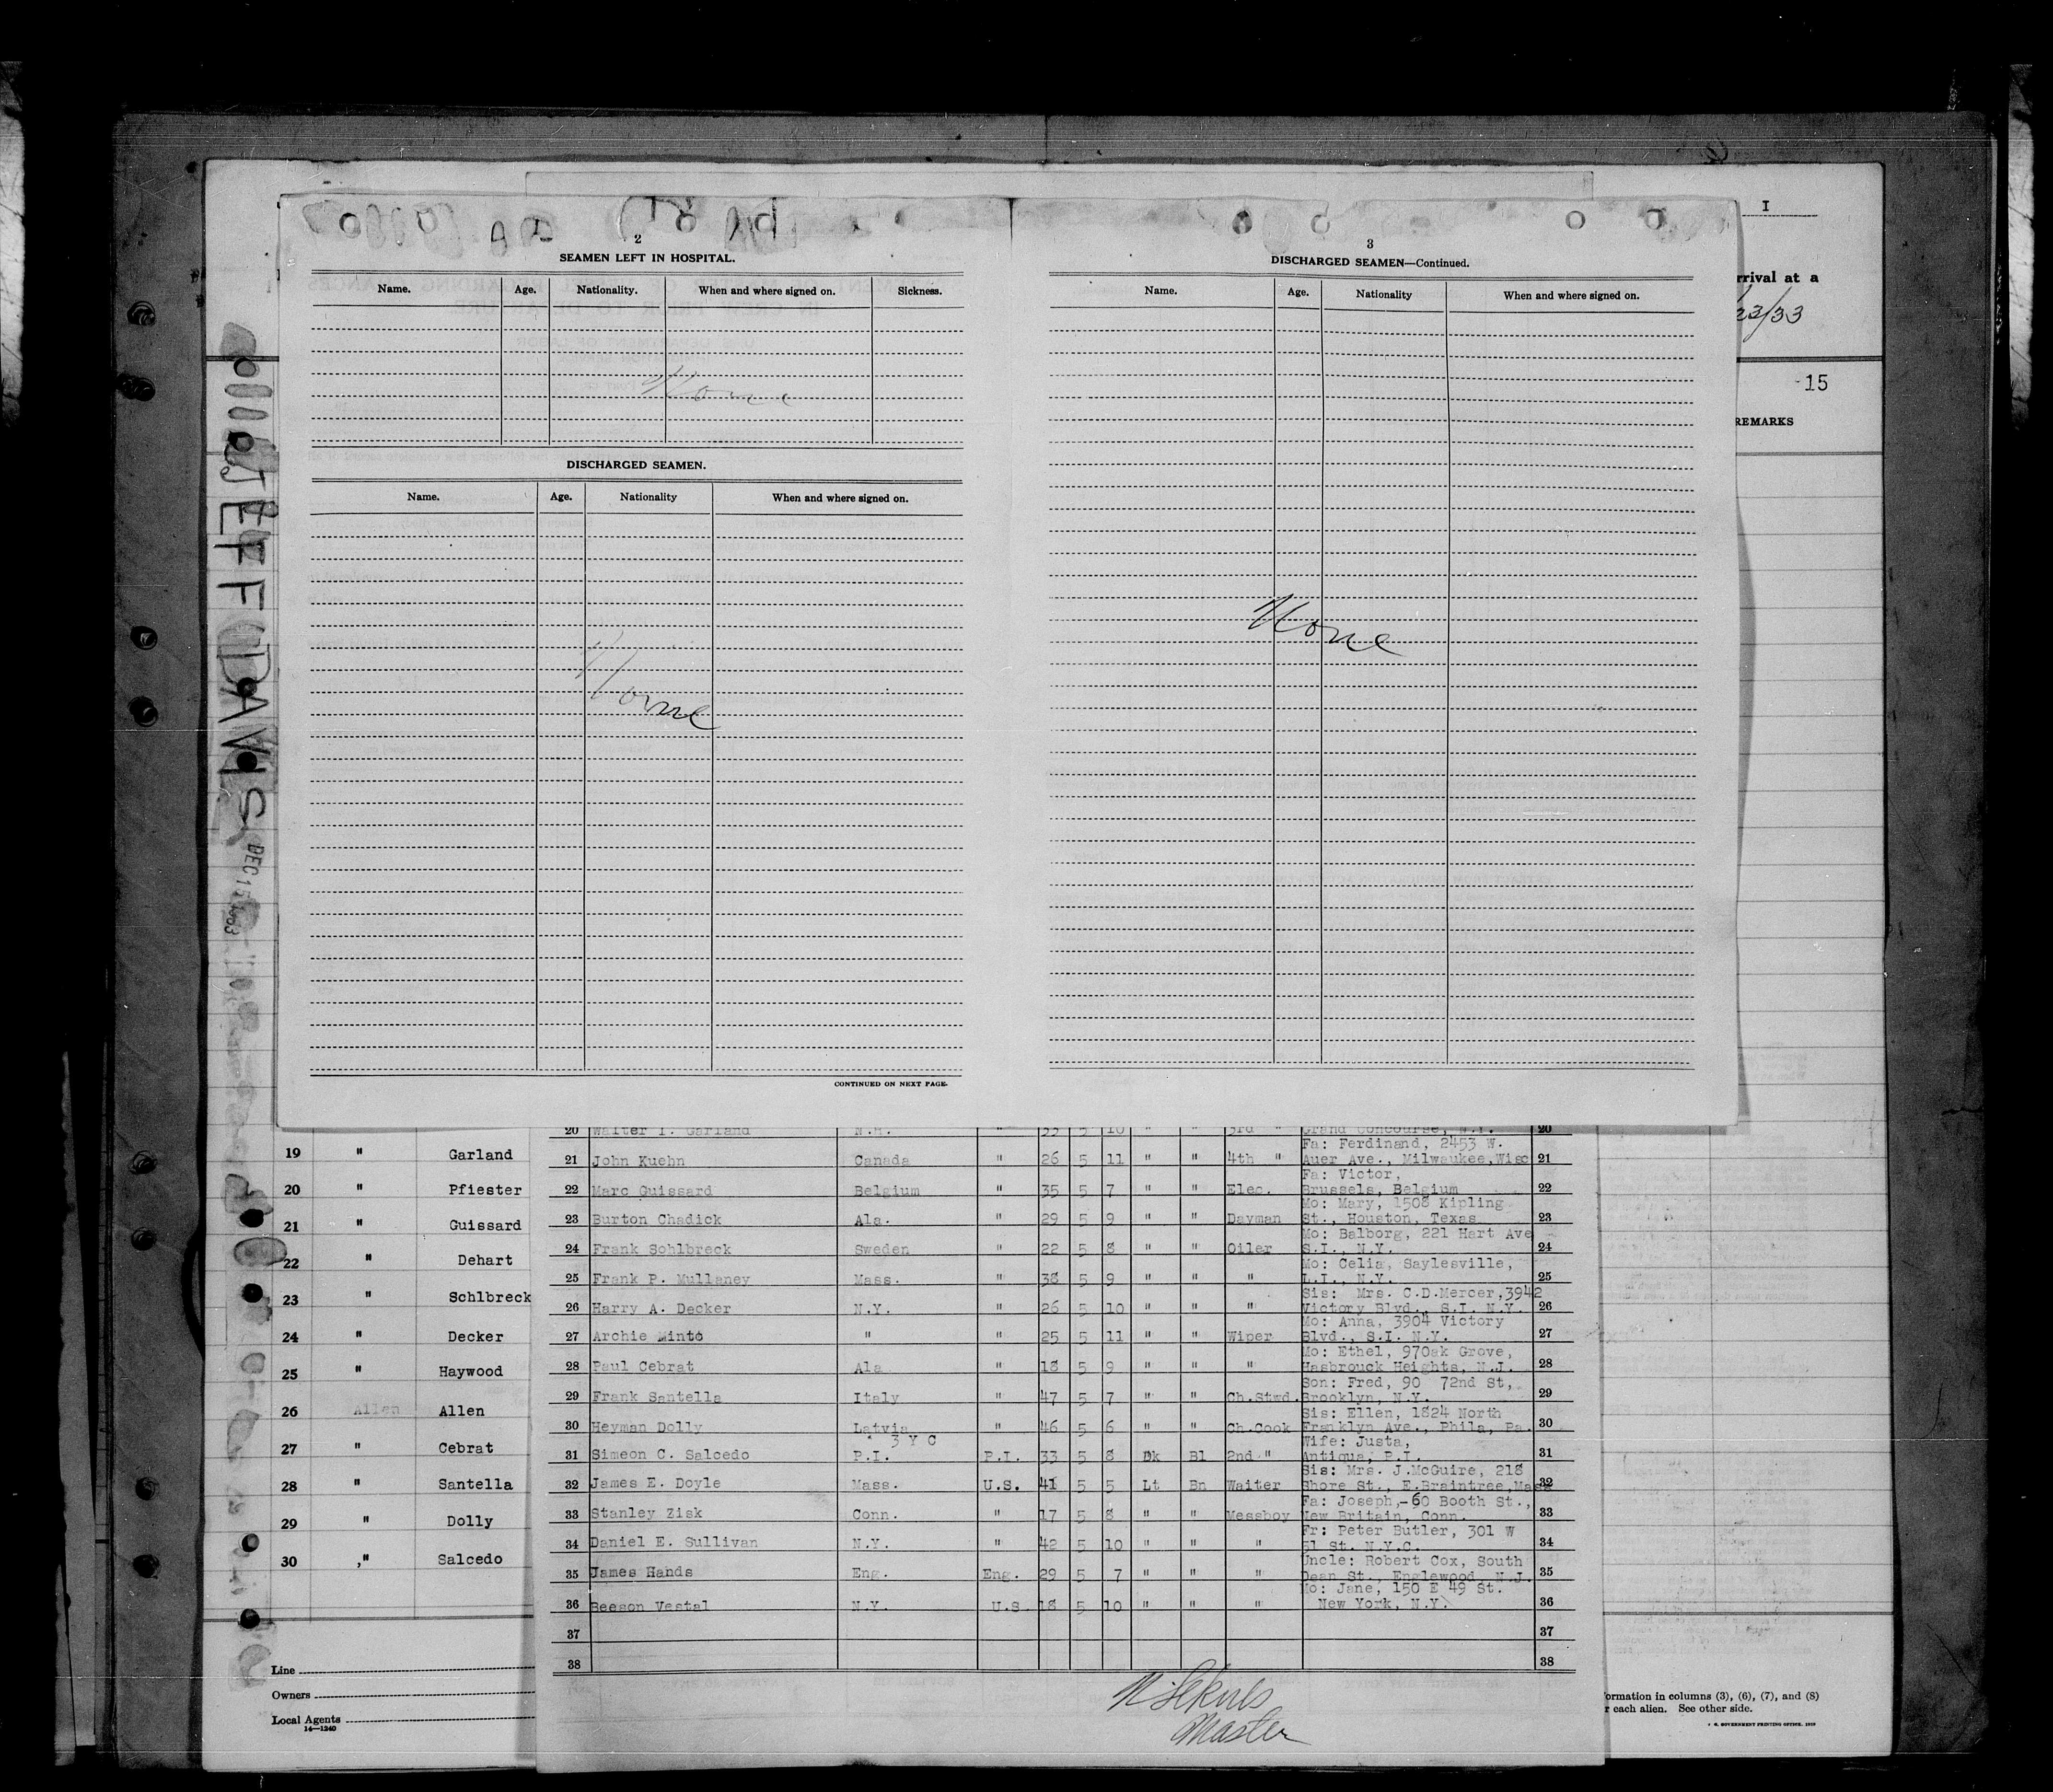 I
2
SEAMEN LEFT IN HOSPITAL.
Name. Age. Nationality. When and where signed on. Sickness.
None
DISCHARGED SEAMEN.
Name. Age. Nationality When and where signed on.
None
CONTINUED ON NEXT PAGE.
3
DISCHARGED SEAMEN—Continued.
Name. Age. Nationality When and where signed on.
None
rrival at a
23/33
15
REMARKS
JEFF DAVIS
DEC 15
19 " Garland
20 " Pfiester
21 " Guissard
22 " Dehart
23 " Schlbreck
24 " Decker
25 " Haywood
26 Allen Allen
27 " Cebrat
28 " Santella
29 " Dolly
30 " Salcedo
Line
Owners
Local Agents
14—1240
20 Walter T. Garland N.H. " 33 5 10 " " 3rd " Grand Concourse, N.Y. 20
Fa: Ferdinand, 2453 W.
21 John Kuehn Canada " 26 5 11 " " 4th " Auer Ave., Milwaukee,Wisc 21
Fa: Victor,
22 Marc Guissard Belgium " 35 5 7 " " Elec. Brussels, Belgium 22
Mo: Mary, 1508 Kipling
23 Burton Chadick Ala. " 29 5 9 " " Dayman St., Houston, Texas 23
Mo: Balborg, 221 Hart Ave
24 Frank Sohlbreck Sweden " 22 5 8 " " Oiler S.I., N.Y. 24
Mo: Celia, Saylesville,
25 Frank P. Mullaney Mass. " 38 5 9 " " " L.I., N.Y. 25
Sis: Mrs. C.D.Mercer,3942
26 Harry A. Decker N.Y. " 26 5 10 " " " Victory Blvd., S.I. N.Y. 26
Mo: Anna, 3904 Victory
27 Archie Minto " " 25 5 11 " " Wiper Blvd., S.I. N.Y. 27
Mo: Ethel, 970ak Grove,
28 Paul Cebrat Ala " 18 5 9 " " " Hasbrouck Heights, N.J. 28
Son: Fred, 90 72nd St,
29 Frank Santella Italy " 47 5 7 " " Ch.Stwd. Brooklyn, N.Y. 29
Sis: Ellen, 1824 North
30 Heyman Dolly Latvia " 46 5 6 " " Ch.Cook Franklyn Ave., Phila, Pa. 30
3 Y C Wife: Justa,
31 Simeon C. Salcedo P.I. P.I. 33 5 8 Dk Bl 2nd " Antiqua, P.I. 31
Sis: Mrs. J.McGuire, 218
32 James E. Doyle Mass. U.S. 41 5 5 Lt Bn Waiter Shore St., E.Braintree,Mass 32
Fa: Joseph,-60 Booth St.,
33 Stanley Zisk Conn. " 17 5 8 " " Messboy New Britain, Conn. 33
Fr: Peter Butler, 301 W
34 Daniel E. Sullivan N.Y. " 42 5 10 " " " 51 St. N.Y.C. 34
Uncle: Robert Cox, South
35 James Hands Eng. Eng. 29 5 7 " " " Dean St., Englewood, N.J. 35
Mo: Jane, 150 E 49 St.
36 Beeson Vestal N.Y. U.S 18 5 10 " " " New York, N.Y. 36
37 37
38 38
Master
ormation in columns (3), (6), (7), and (8)
r each alien. See other side.
GOVERNMENT PRINTING OFFICE.